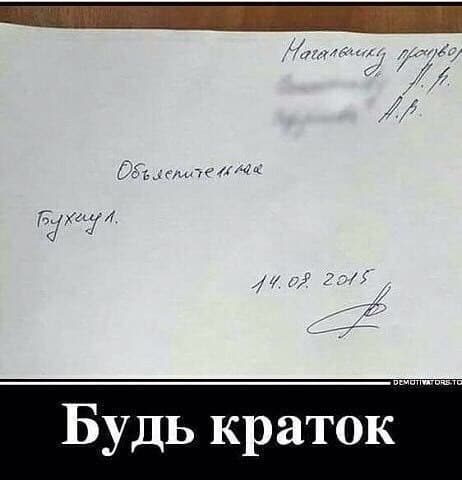 Начальнику произво
А.Н.
А.В.
Объяснительная
Бухнул.
14.08.2015
DEMOTIVATORS.TO
Будь краток